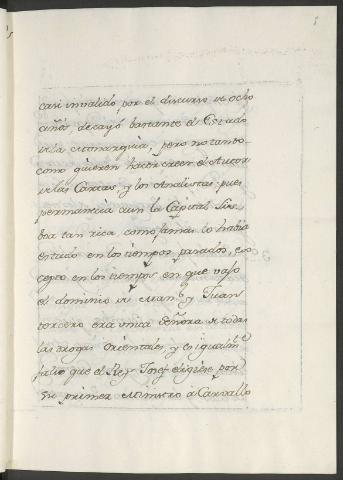 casi invalido por el discurso de ocho
años, decayó bastante el Estado
de la Monarquia, pero no tanto
como quieren hacer creer el Autor
de las Cartas, y los Analistas; pues
permanecia aun la Capital Lis-
boa tan rica como jamas lo habia
estado en los tiempos pasados, ex-
cepto en los tiempos en que vajo
el dominio de Man.l y Juan
tercero era unica Señora de todas
las drogas orientales, y es igualm.te
falso que el Rey Josef eligiese por
su primer Ministro à Carvallo